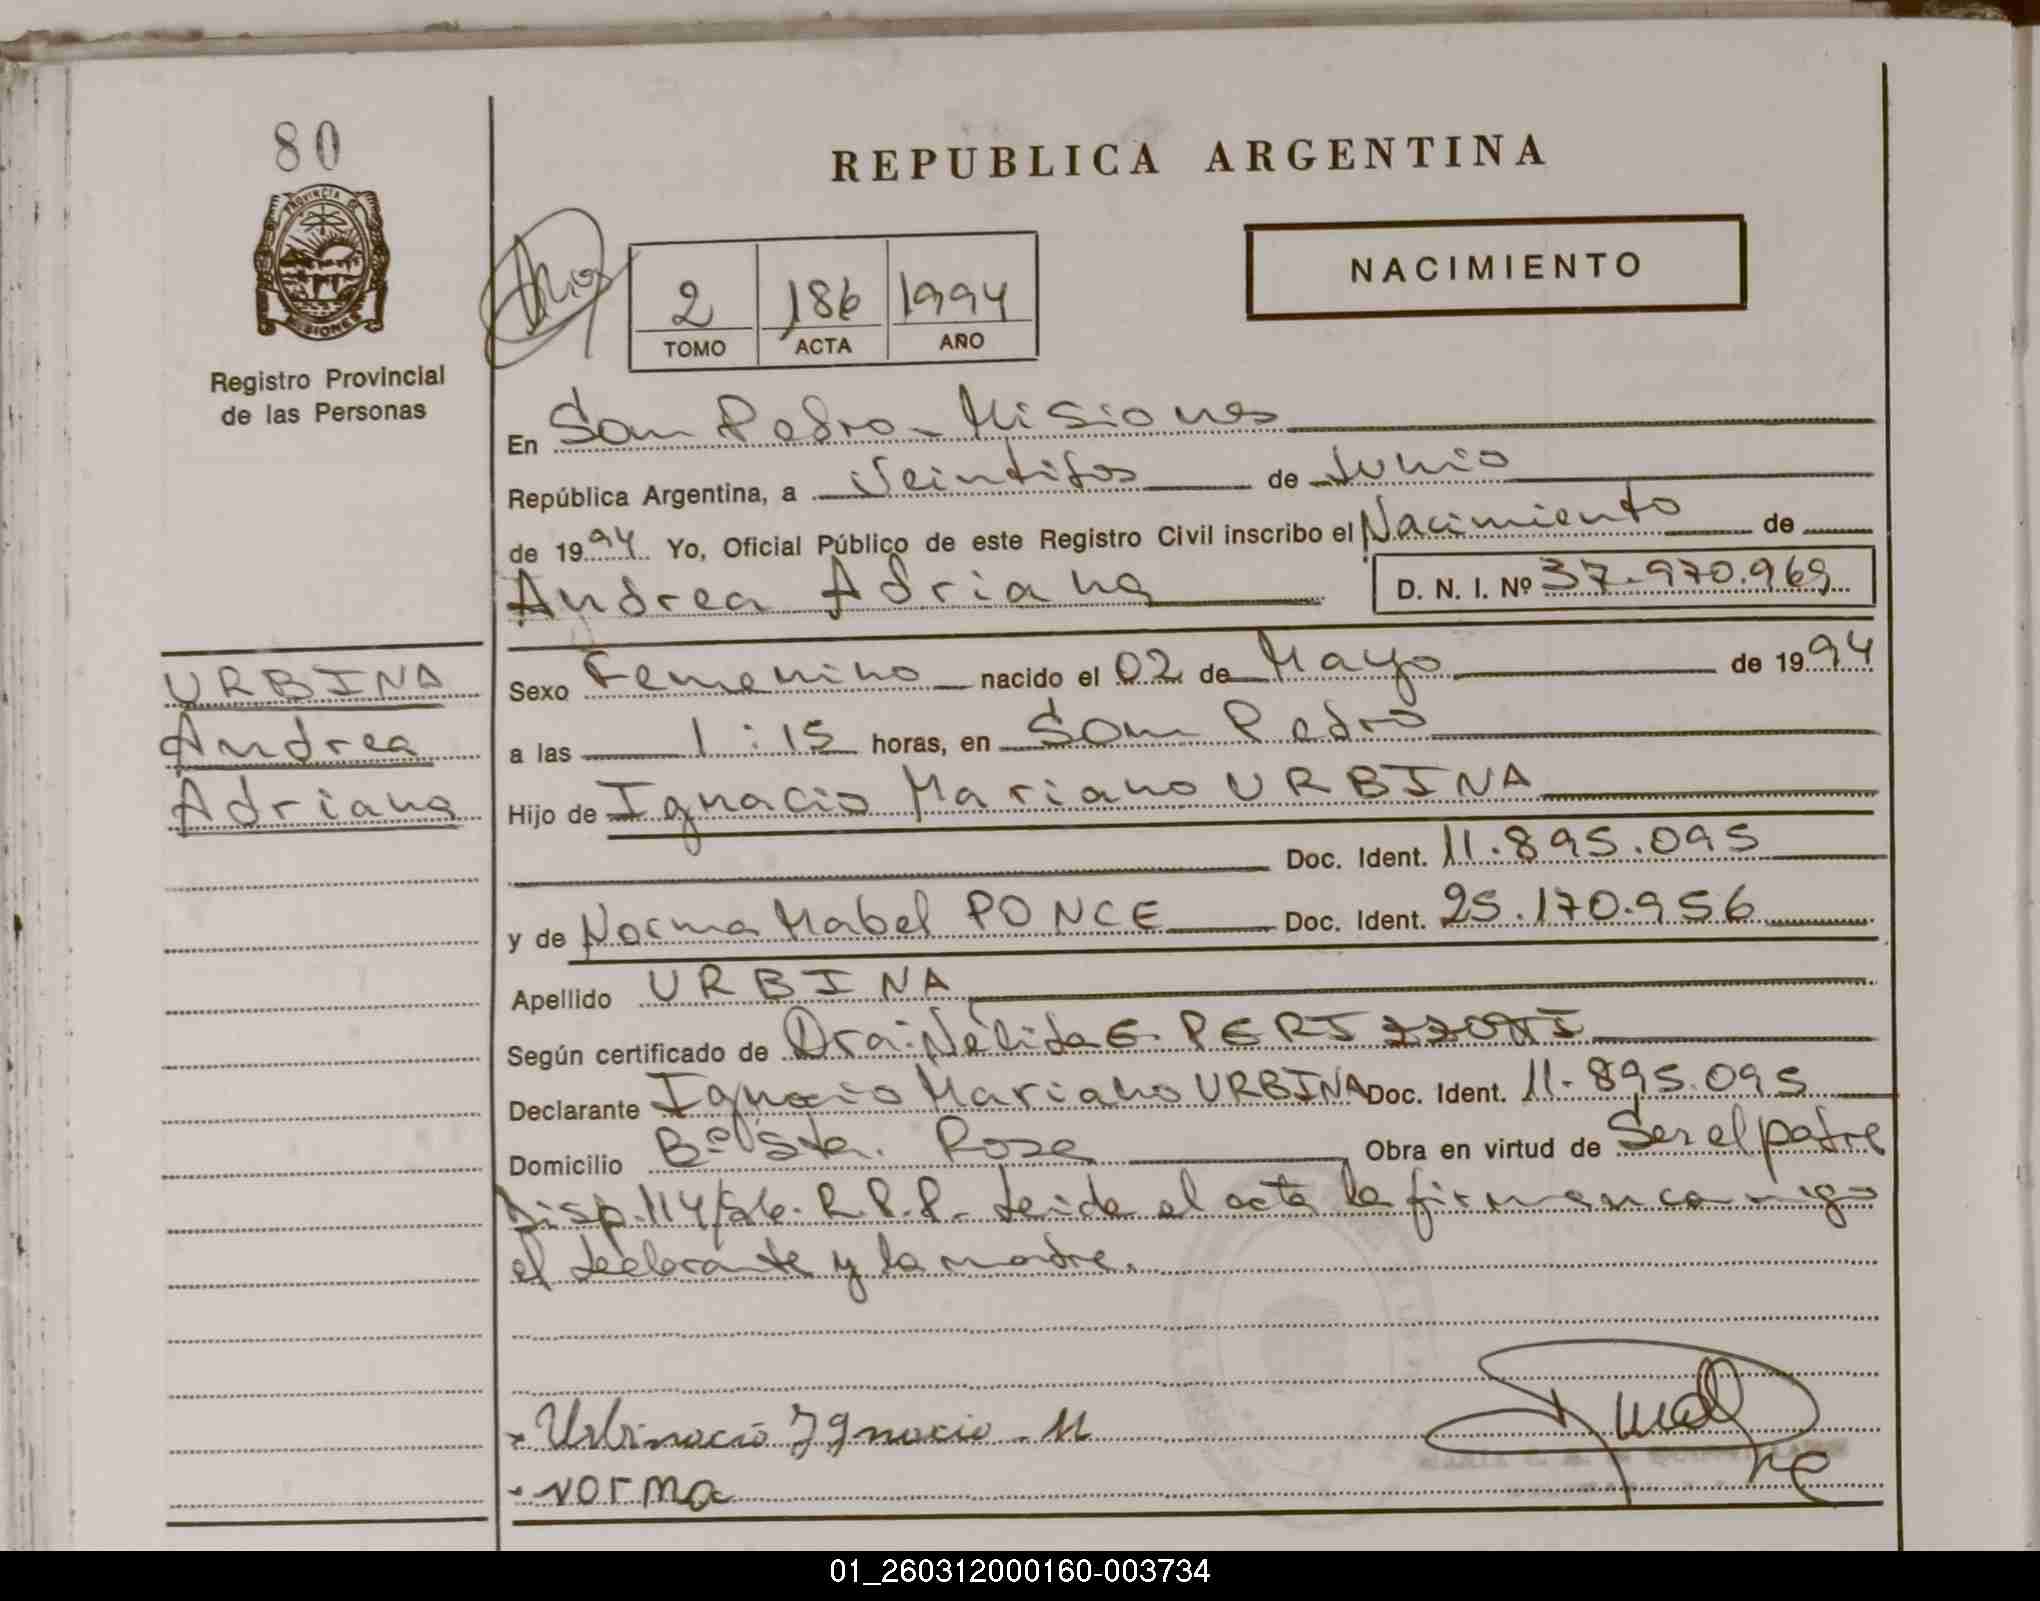 80
REPUBLICA ARGENTINA
PROVINCIA
MISIONES
Registro Provincial
de las Personas
2 186 1994
TOMO ACTA AÑO
NACIMIENTO
En San Pedro - Misiones
República Argentina, a Veintidos de Junio
de 1994 Yo, Oficial Público de este Registro Civil inscribo el Nacimiento de
Andrea Adriana D. N. I. Nº 37.970.969
URBINA
Andrea
Adriana
Sexo Femenino nacido el 02 de Mayo de 1994
a las 1:15 horas, en San Pedro
Hijo de Ignacio Mariano URBINA
Doc. Ident. 11.895.095
y de Norma Mabel PONCE Doc. Ident. 25.170.956
Apellido URBINA
Según certificado de Dra. Nélida E. PERIZZOTTI
Declarante Ignacio Mariano URBINA Doc. Ident. 11.895.095
Domicilio Bº Sta. Rosa Obra en virtud de Ser el padre
Disp. 114/86. R.P.P. Leida el acta la firman conmigo
el declarante y la madre.
Ignacio - M
norma
01_260312000160-003734